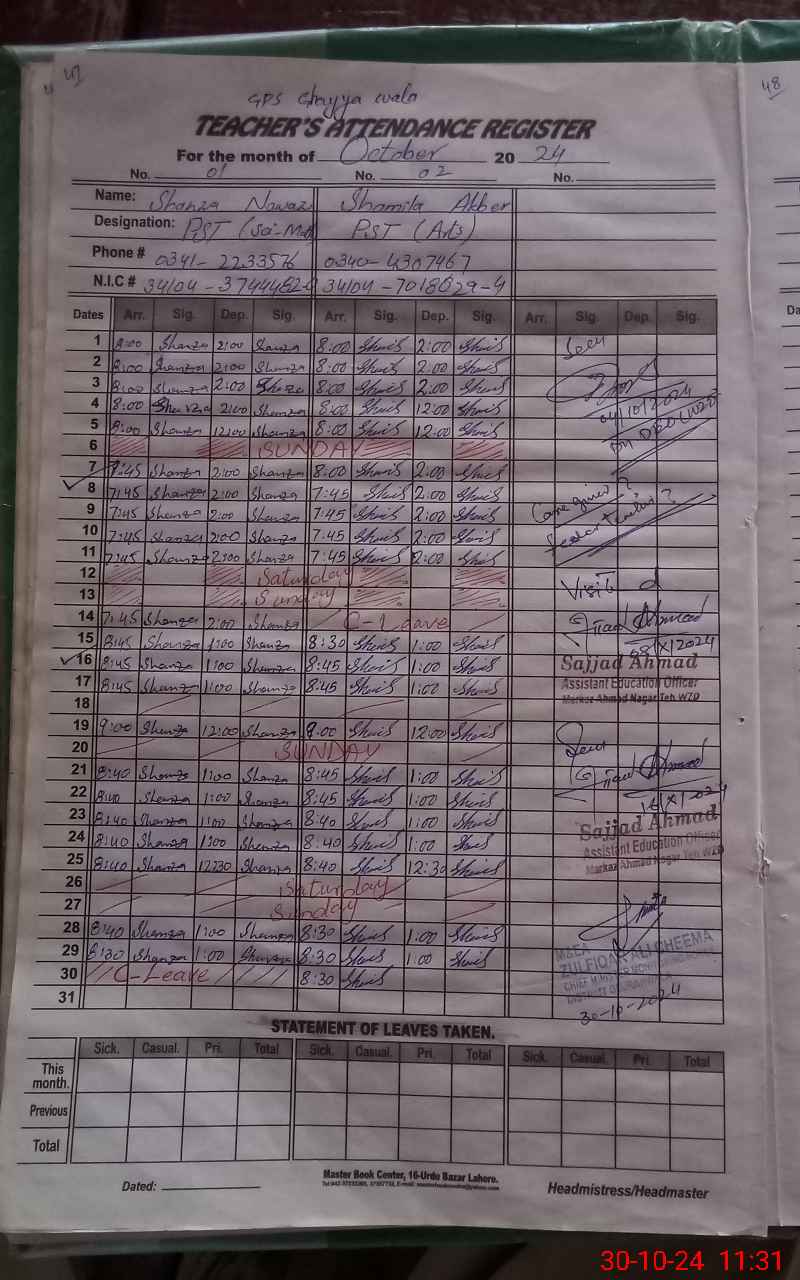 47
48
GPS Chayya Wala
TEACHER'S ATTENDANCE REGISTER
For the month of October 20 24
No. 01 No. 02 No.
Name: Shanza Nawaz Shamila Akber
Designation: PST (Sci-Math) PST (Arts)
Phone # 0341-2233576 0340-4307467
N.I.C # 34104-3744482 34104-7018029-4
Dates Arr. Sig. Dep. Sig. Arr. Sig. Dep. Sig. Arr. Sig. Dep. Sig.
1 8:00 Shanza 2:00 Shanza 8:00 2:00 Seen
2 8:00 Shanza 2:00 Shanza 8:00 2:00
3 8:00 Shanza 2:00 Shanza 8:00 2:00
4 8:00 Shanza 2:00 Shanza 8:00 12:00 04/10/2024
5 8:00 Shanza 12:00 Shanza 8:00 12:00
6 SUNDAY
7 7:45 Shanza 2:00 Shanza 8:00 2:00
8 7:45 Shanza 2:00 Shanza 7:45 2:00 Care giver?
9 7:45 Shanza 2:00 Shanza 7:45 2:00
10 7:45 Shanza 2:00 Shanza 7:45 2:00
11 7:45 Shanza 2:00 Shanza 7:45 2:00
12 Saturday
13 Sunday Visit
14 7:45 Shanza 2:00 Shanza C-Leave
15 8:45 Shanza 1:00 Shanza 8:30 1:00 08/X/2024
16 8:45 Shanza 1:00 Shanza 8:45 1:00 Sajjad Ahmad
17 8:45 Shanza 1:00 Shanza 8:45 1:00 Assistant Education Officer
Markaz Ahmad Nagar Teh WZD
18
19 9:00 Shanza 12:00 Shanza 9:00 12:00
20 SUNDAY Seen
21 8:40 Shanza 1:00 Shanza 8:45 1:00
22 8:40 Shanza 1:00 Shanza 8:45 1:00 16/X/2024
23 8:40 Shanza 1:00 Shanza 8:40 1:00 Sajjad Ahmad
24 8:40 Shanza 1:00 Shanza 8:40 1:00 Assistant Education Officer
25 8:40 Shanza 12:30 Shanza 8:40 12:30 Markaz Ahmad Nagar Teh WZD
26 Saturday
27 Sunday
28 8:40 Shanza 1:00 Shanza 8:30 1:00 M&EA
29 8:30 Shanza 1:00 Shanza 8:30 1:00 ZULFIQAR ALI CHEEMA
30 C-Leave 8:30
31 30-10-2024
STATEMENT OF LEAVES TAKEN.
Sick. Casual. Pri. Total Sick. Casual. Pri. Total Sick. Casual. Pri. Total
This month.
Previous
Total
Dated:
Master Book Center, 16-Urdu Bazar Lahore.
Headmistress/Headmaster
30-10-24 11:31